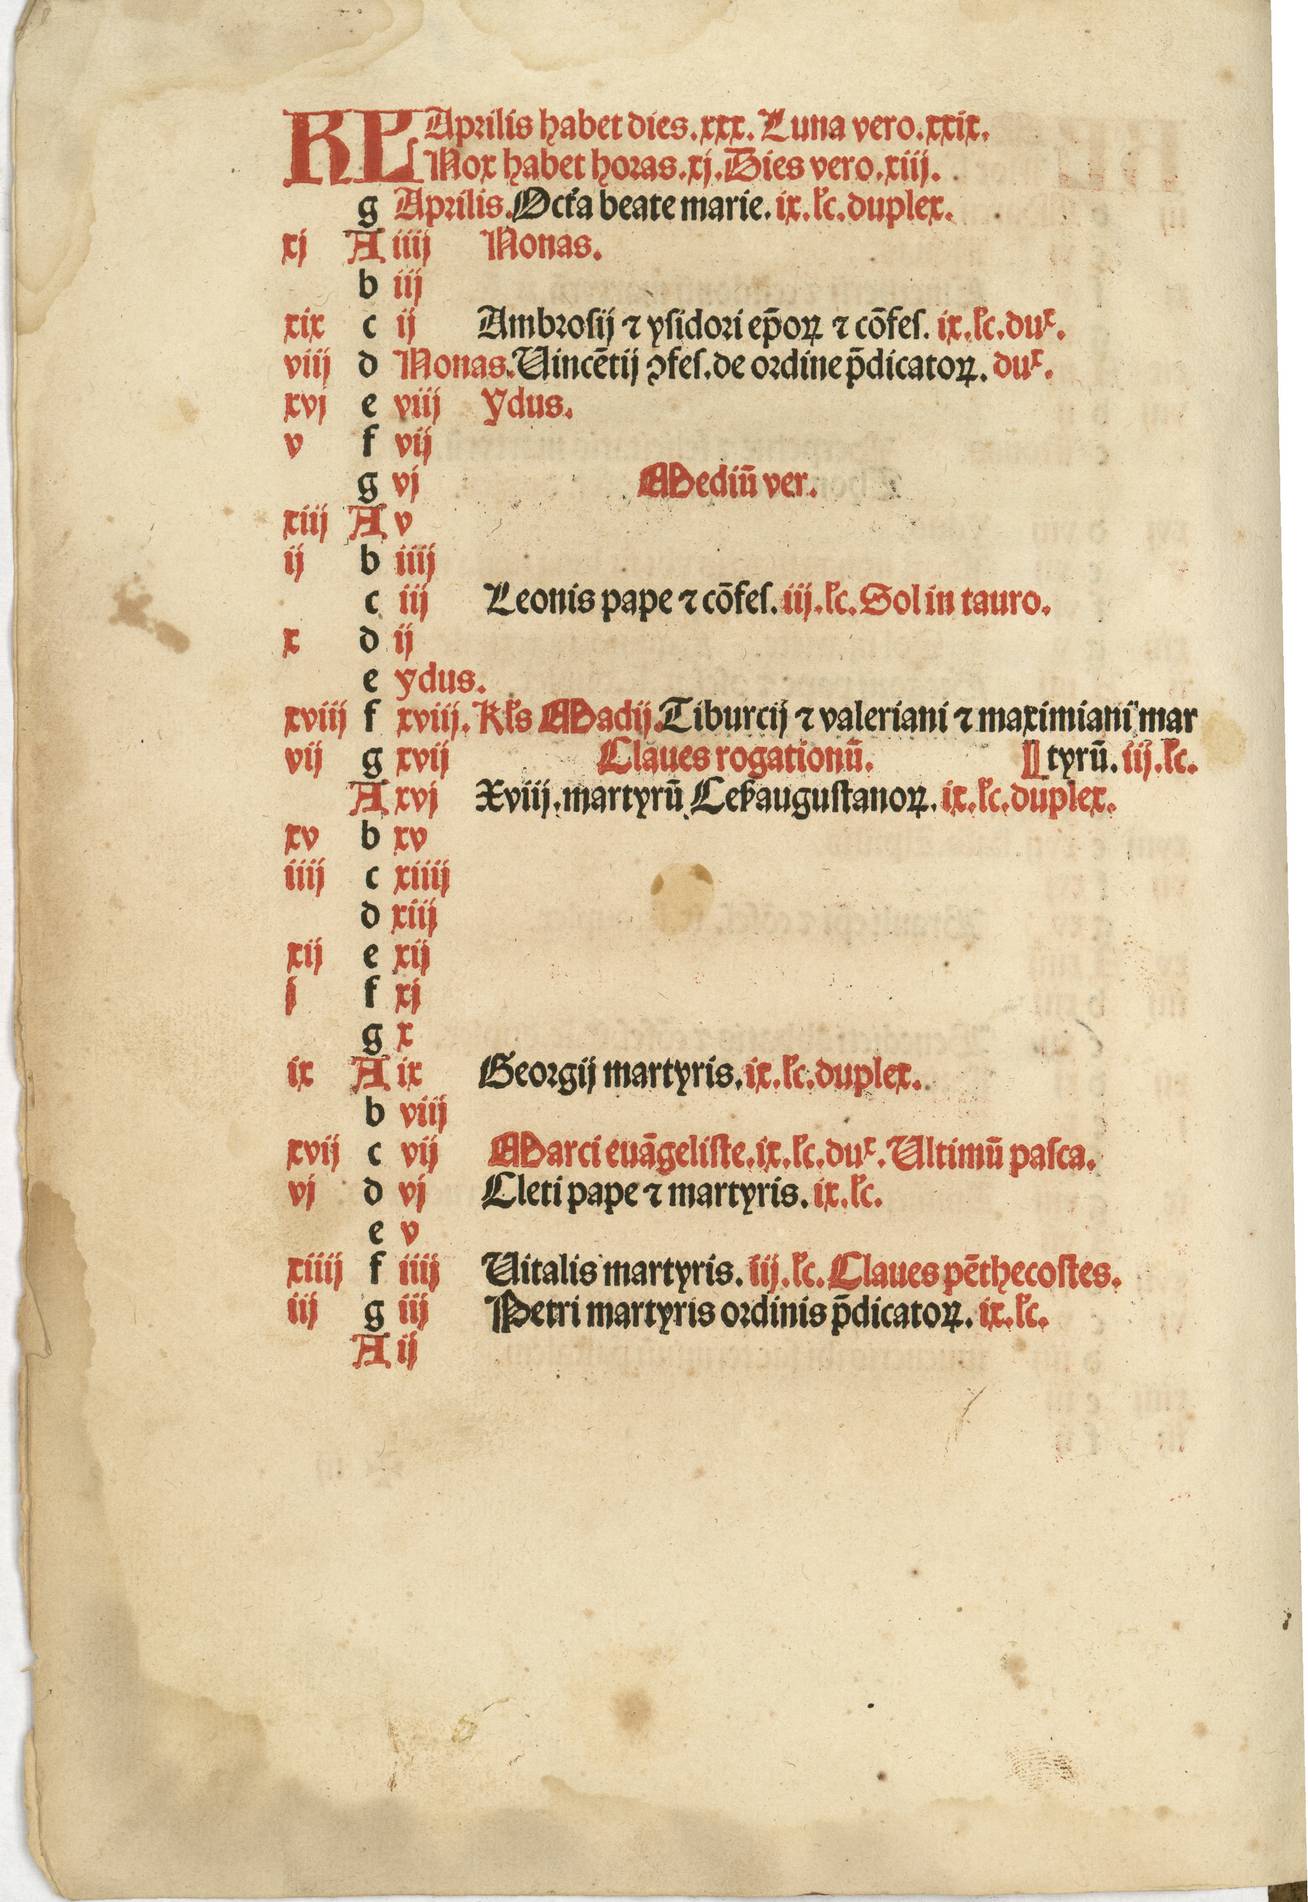 KL Aprilis habet dies.xxx. Luna vero.xxix.
Nox habet horas.xj.Dies vero.xiij.
g Aprilis.Octa beate marie.ix.lc.duplex.
xj A iiij Nonas.
b iij
xix c ij Ambrosij ⁊ ysidori ep̄oꝝ ⁊ cōfes. ix.lc.dux.
viij d Nonas.Uincētij ꝯfes.de ordine p̄dicatoꝝ. dux.
xvj e viij Ydus.
v f vij
g vj Mediū ver.
xiij A v
ij b iiij
c iij Leonis pape ⁊ cōfes.iij.lc.Sol in tauro.
x d ij
e ydus.
xviij f xviij. Kls Madij.Tiburcij ⁊ valeriani ⁊ maximiani mar
vij g xvij Claues rogationū. tyrū.iij.lc.
A xvj Xviij.martyrū Cesaugustanoꝝ.ix.lc.duplex.
xv b xv
iiij c xiiij
d xiij
xij e xij
j f xj
g x
ix A ix Georgij martyris.ix.lc.duplex.
b viij
xvij c vij Marci euāgeliste.ix.lc.dux.Ultimū pasca.
vj d vj Cleti pape ⁊ martyris.ix.lc.
e v
xiiij f iiij Uitalis martyris. iij.lc.Claues pēthecostes.
iij g iij Petri martyris ordinis p̄dicatoꝝ. ix.lc.
A ij